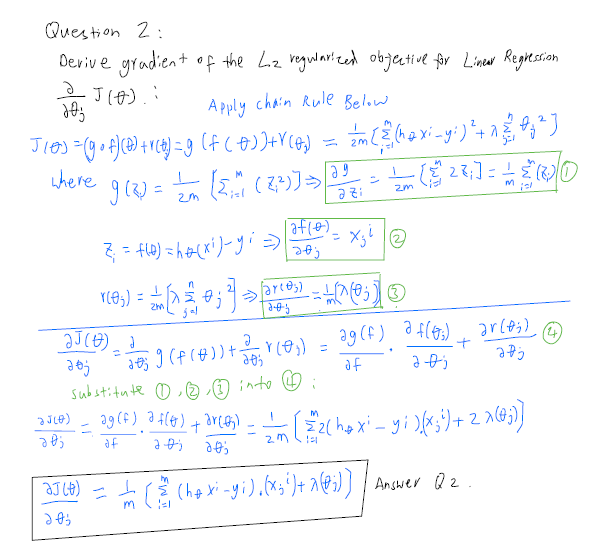 Question 2 :
Derive gradient of the L2 regularized objective for Linear Regression
∂/∂θj J(θ) :
Apply chain Rule Below
J(θ) = (g∘f)(θ) + r(θ) = g(f(θ)) + r(θj) = 1/2m [Σ_{i=1}^{m} (hθ x^i − y^i)^2 + λ Σ_{j=1}^{n} θj^2]
where g(zi) = 1/2m [Σ_{i=1}^{m} (zi^2)] ⇒ ∂g/∂zi = 1/2m [Σ_{i=1}^{m} 2zi] = 1/m Σ_{i=1}^{m} (zi) ①
zi = f(θ) = hθ(x^i) − y^i ⇒ ∂f(θ)/∂θj = xj^i ②
r(θj) = 1/2m [λ Σ_{j=1}^{n} θj^2] ⇒ ∂r(θj)/∂θj = 1/m (λ(θj)) ③
∂J(θ)/∂θj = ∂/∂θj g(f(θ)) + ∂/∂θj r(θj) = ∂g(f)/∂f · ∂f(θj)/∂θj + ∂r(θj)/∂θj ④
substitute ①, ②, ③ into ④ :
∂J(θ)/∂θj = ∂g(f)/∂f · ∂f(θ)/∂θj + ∂r(θj)/∂θj = 1/2m [Σ_{i=1}^{m} 2(hθ x^i − y^i).(xj^i) + 2λ(θj)]
∂J(θ)/∂θj = 1/m [Σ_{i=1}^{m} (hθ x^i − y^i).(xj^i) + λ(θj)] Answer Q2.